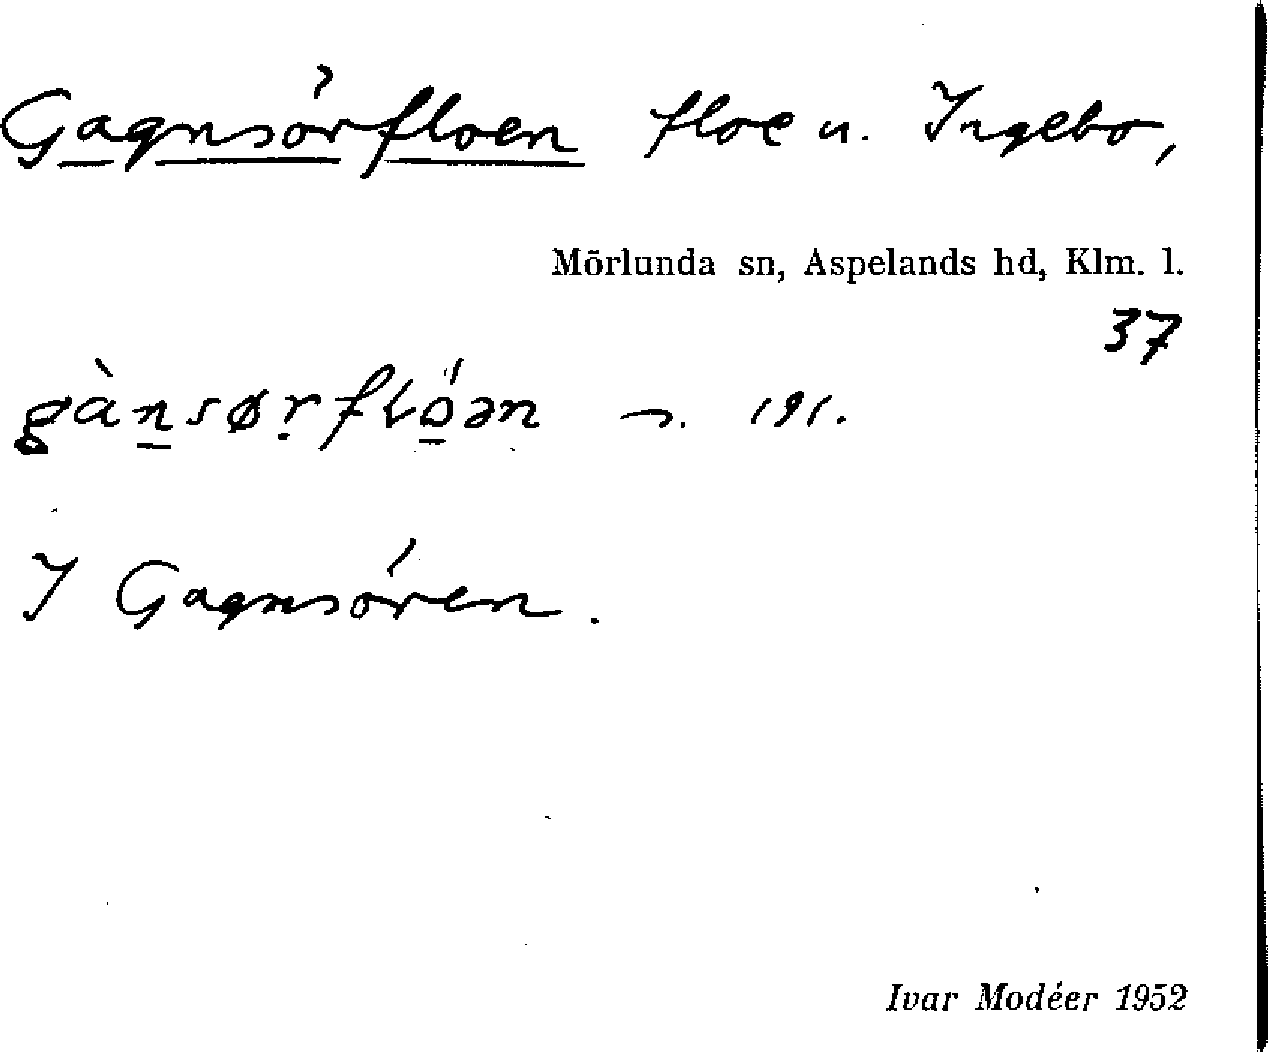 Gagnsörfloen floe u. Ingebo,
Mörlunda sn, Aspelands hd, Klm. l.
37
gàn̠sørfló̠ən 191.
I Gagnsören.
Ivar Modéer 1952